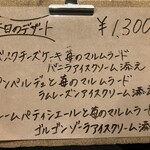 本日のデザート
¥1,300
ズッ)クチーズケーキ 苺のマルムラード
バニラアイスクリーム添え
ンペルデュと苺のマルムラード
ラムレーズンアイスクリーム添え
ームパティシエールと苺のマルムラード
ゴルゴンゾーラアイスクリーム添